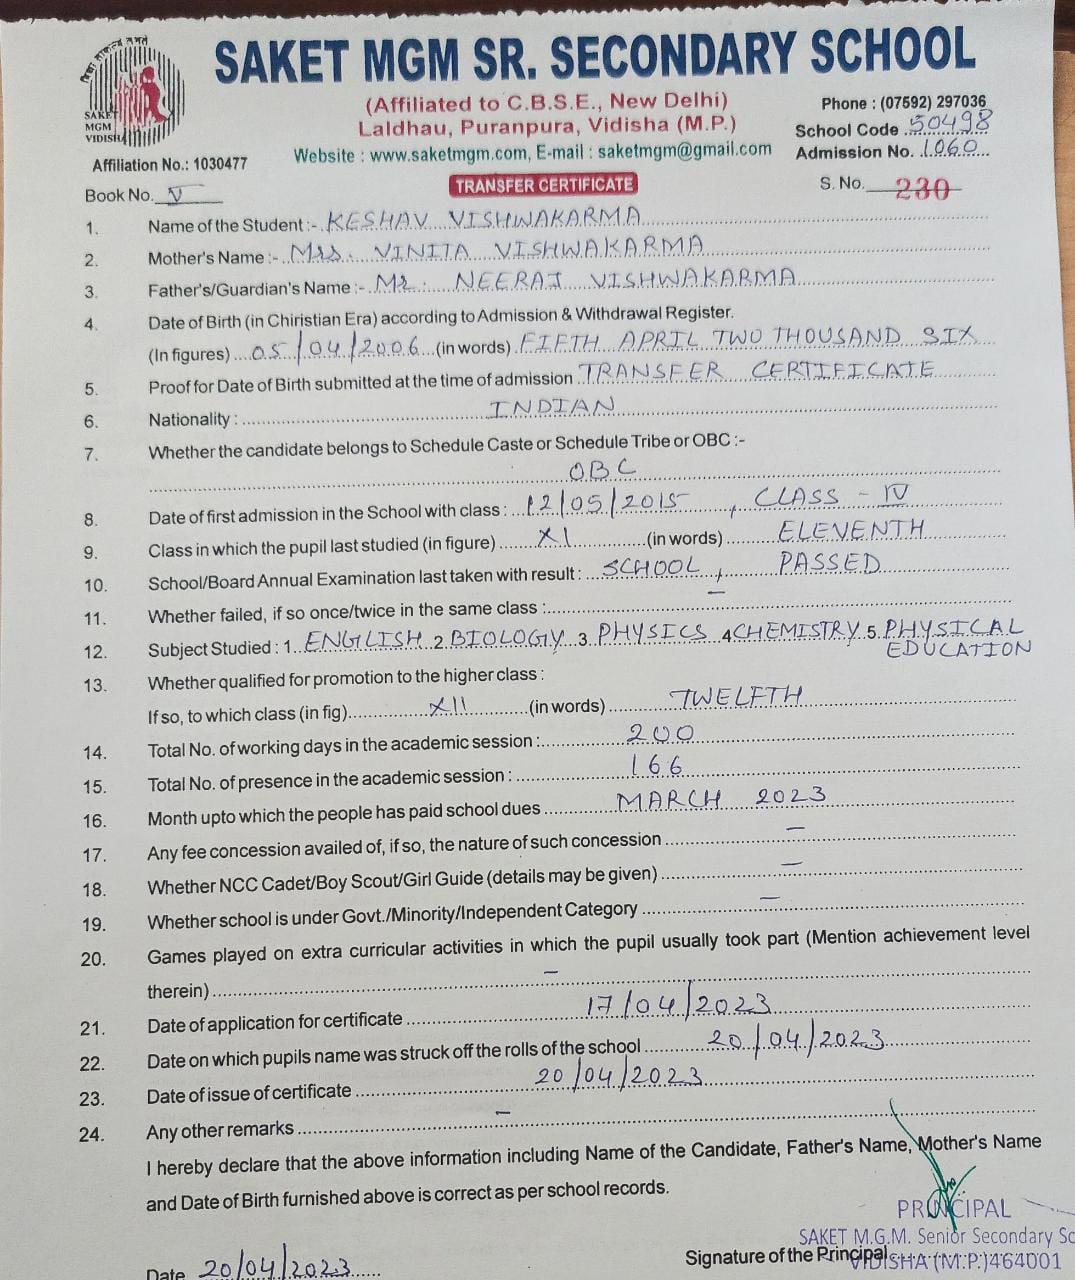 SAKET MGM SR. SECONDARY SCHOOL
SAKET
MGM
VIDISHA
(Affiliated to C.B.S.E., New Delhi)
Laldhau, Puranpura, Vidisha (M.P.)
Website : www.saketmgm.com, E-mail : saketmgm@gmail.com
Phone : (07592) 297036
School Code 50498
Admission No. 1060
Affiliation No.: 1030477
Book No. V
TRANSFER CERTIFICATE
S. No. 230
1. Name of the Student :- KESHAV VISHWAKARMA
2. Mother's Name :- Mrs. VINITA VISHWAKARMA
3. Father's/Guardian's Name :- Mr. NEERAJ VISHWAKARMA
4. Date of Birth (in Chiristian Era) according to Admission & Withdrawal Register.
(In figures) 05/04/2006 (in words) FIFTH APRIL TWO THOUSAND SIX
5. Proof for Date of Birth submitted at the time of admission TRANSFER CERTIFICATE
6. Nationality : INDIAN
7. Whether the candidate belongs to Schedule Caste or Schedule Tribe or OBC :-
OBC
8. Date of first admission in the School with class : 12/05/2015, CLASS - IV
9. Class in which the pupil last studied (in figure) XI (in words) ELEVENTH
10. School/Board Annual Examination last taken with result : SCHOOL, PASSED
11. Whether failed, if so once/twice in the same class : —
12. Subject Studied : 1 ENGLISH 2 BIOLOGY 3 PHYSICS 4 CHEMISTRY 5 PHYSICAL
EDUCATION
13. Whether qualified for promotion to the higher class :
If so, to which class (in fig) XII (in words) TWELFTH
14. Total No. of working days in the academic session : 200
15. Total No. of presence in the academic session : 166
16. Month upto which the people has paid school dues MARCH 2023
17. Any fee concession availed of, if so, the nature of such concession —
18. Whether NCC Cadet/Boy Scout/Girl Guide (details may be given) —
19. Whether school is under Govt./Minority/Independent Category —
20. Games played on extra curricular activities in which the pupil usually took part (Mention achievement level
therein) —
21. Date of application for certificate 17/04/2023
22. Date on which pupils name was struck off the rolls of the school 20/04/2023
23. Date of issue of certificate 20/04/2023
24. Any other remarks —
I hereby declare that the above information including Name of the Candidate, Father's Name, Mother's Name
and Date of Birth furnished above is correct as per school records.
PRINCIPAL
SAKET M.G.M. Senior Secondary Sc
VIDISHA (M.P.)464001
Signature of the Principal
Date 20/04/2023